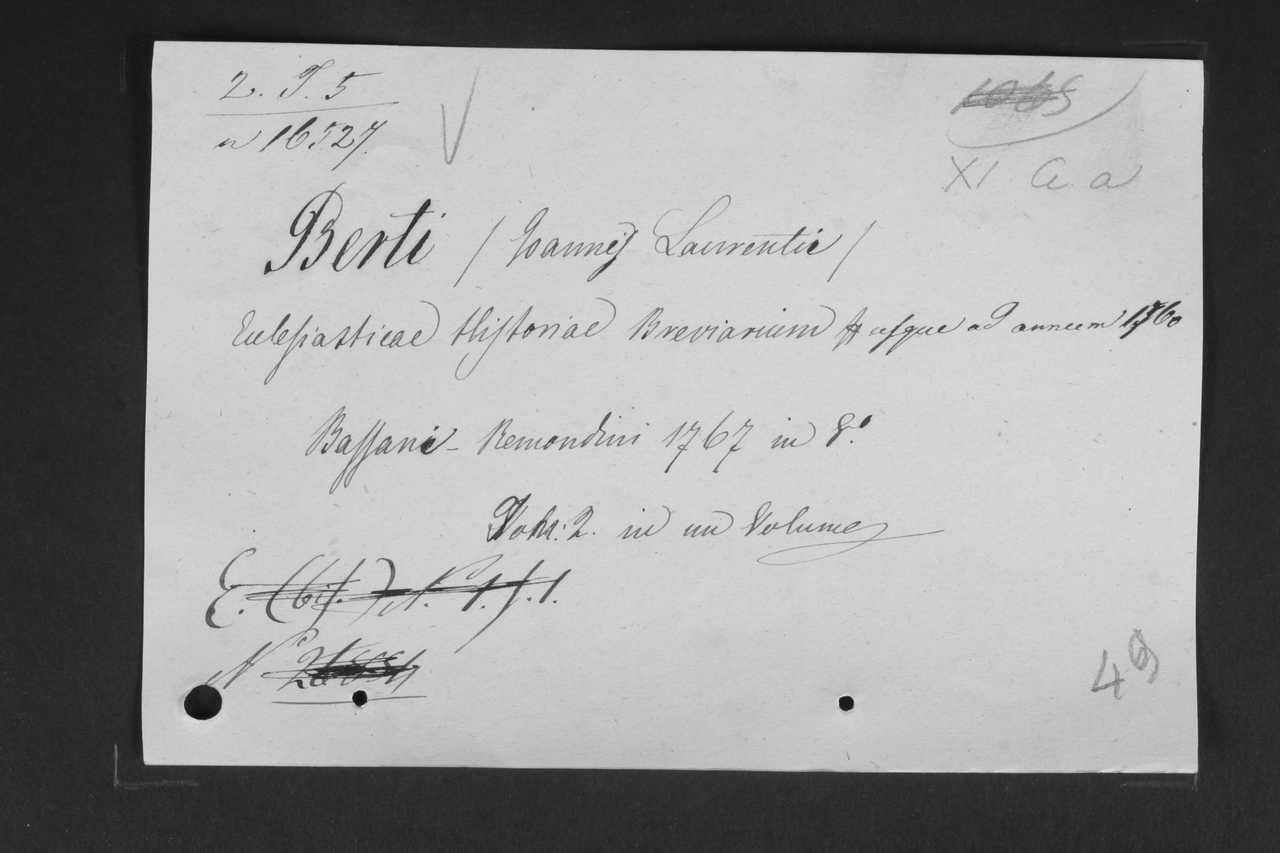 2. T. 5
n 16527
XI C a
Berti / Joannis Laurentii /
Eclesiasticae Historiae Breviarium usque ad annum 1760
Bassani - Remondini 1767 in 8.º
2. in un Volume
E. (bis.) N. 1. f. 1.
Nº
49